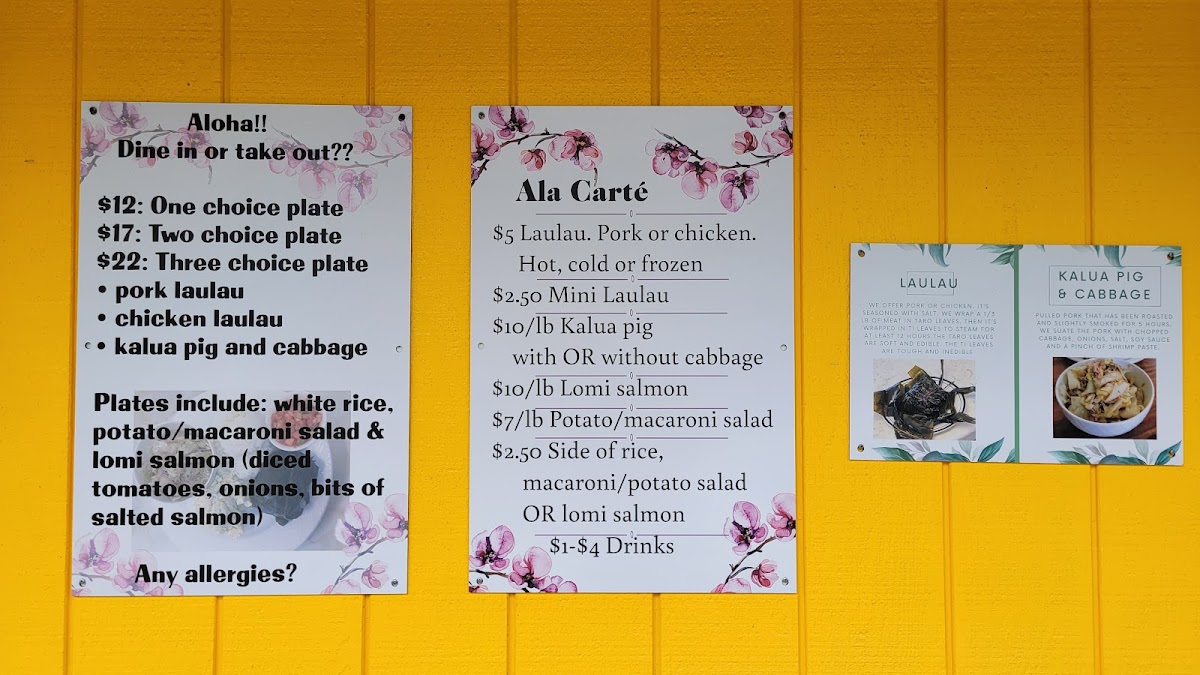 Aloha!!
Dine in or take out??
$12: One choice plate
$17: Two choice plate
$22: Three choice plate
• pork laulau
• chicken laulau
• kalua pig and cabbage
Plates include: white rice,
potato/macaroni salad &
lomi salmon (diced
tomatoes, onions, bits of
salted salmon)
Any allergies?
Ala Carté
$5 Laulau. Pork or chicken.
Hot, cold or frozen
$2.50 Mini Laulau
$10/lb Kalua pig
with OR without cabbage
$10/lb Lomi salmon
$7/lb Potato/macaroni salad
$2.50 Side of rice,
macaroni/potato salad
OR lomi salmon
$1-$4 Drinks
LAULAU
WE OFFER PORK OR CHICKEN. IT'S
SEASONED WITH SALT. WE WRAP A 1/3
LB OF MEAT IN TARO LEAVES. THEN IT'S
WRAPPED IN TI LEAVES TO STEAM FOR
AT LEAST 12 HOURS. THE TARO LEAVES
ARE SOFT AND EDIBLE. THE TI LEAVES
ARE TOUGH AND INEDIBLE
KALUA PIG
& CABBAGE
PULLED PORK THAT HAS BEEN ROASTED
AND SLIGHTLY SMOKED FOR 5 HOURS,
WE SUATE THE PORK WITH CHOPPED
CABBAGE, ONIONS, SALT, SOY SAUCE
AND A PINCH OF SHRIMP PASTE.